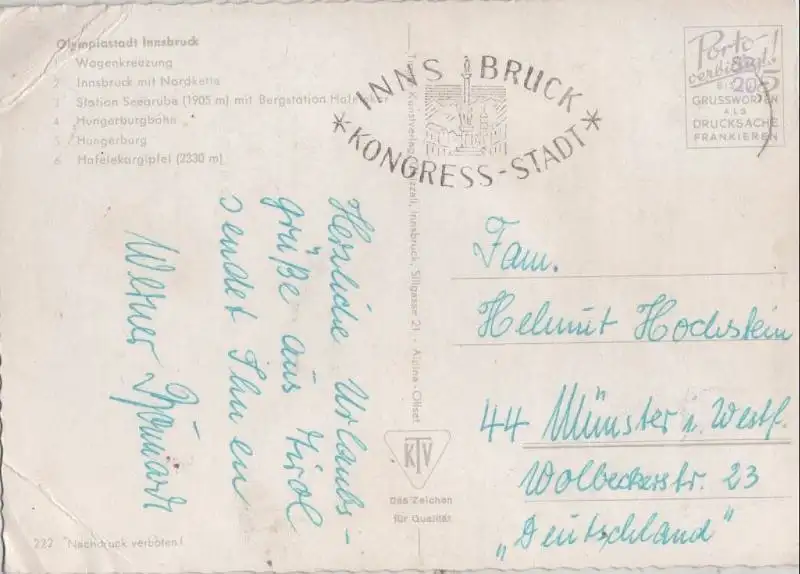 Olympiastadt Innsbruck
1 Wagenkreuzung
2 Innsbruck mit Nordkette
3 Station Seegrube (1905 m) mit Bergstation Hafelekar
4 Hungerburgbahn
5 Hungerburg
6 Hafelekargipfel (2330 m)
INNSBRUCK
* KONGRESS-STADT *
Porto-
verbilligt!
BIS
GRUSSWORTEN
ALS
DRUCKSACHE
FRANKIEREN
Herzliche Urlaubs-
grüße aus Tirol
sendet Ihnen
Werner
Fam.
Helmut Hochstein
44 Münster i. Westf.
Wolbeckerstr. 23
"Deutschland"
Kunstverlag Innsbruck, Sillgasse 21 - Alpina-Offset
KTV
Das Zeichen
für Qualität
222 Nachdruck verboten!